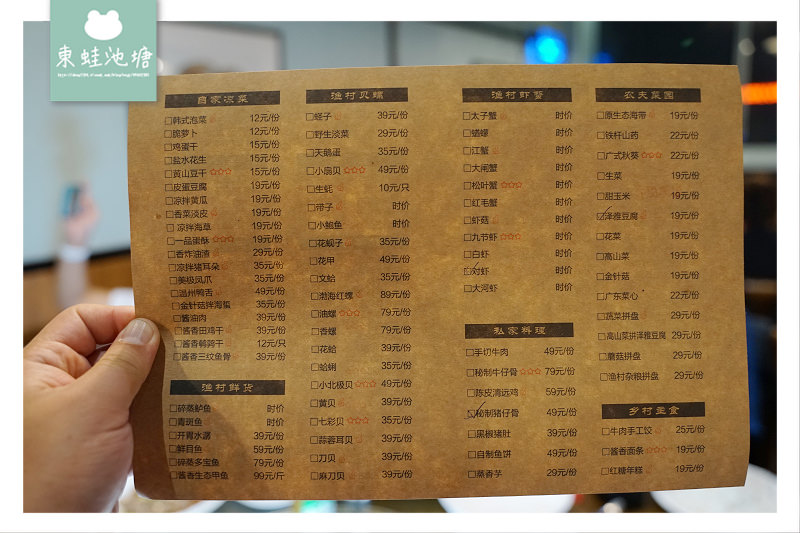 東蛙池塘
自家凉菜
□韩式泡菜 12元/份
□脆萝卜 12元/份
□鸡蛋干 15元/份
□盐水花生 15元/份
□黄山豆干 ☆☆☆ 15元/份
□皮蛋豆腐 19元/份
□凉拌黄瓜 19元/份
□香菜淡皮 19元/份
□凉拌海草 19元/份
□一品蛋酥 ☆☆☆ 19元/份
□香炸油渣 29元/份
□凉拌猪耳朵 35元/份
□美极凤爪 35元/份
□温州鸭舌 49元/份
□金针菇拌海蜇 35元/份
□酱油肉 39元/份
□酱香田鸡干 39元/份
□酱香鹌鹑干 12元/只
□酱香三纹鱼骨 39元/份
渔村鲜货
□碎蒸鲈鱼 时价
□青斑鱼 时价
□开胃水潺 39元/份
□鲜目鱼 59元/份
□碎蒸多宝鱼 79元/份
□酱香生态甲鱼 99元/斤
渔村贝螺
□蛏子 39元/份
□野生淡菜 29元/份
□天鹅蛋 35元/份
□小扇贝 ☆☆☆ 49元/份
□生蚝 10元/只
□带子 时价
□小鲍鱼 时价
□花蚬子 35元/份
□花甲 49元/份
□文蛤 35元/份
□渤海红螺 89元/份
□油螺 ☆☆☆ 79元/份
□香螺 79元/份
□花蛤 39元/份
□蛤蜊 35元/份
□小北极贝 ☆☆☆ 49元/份
□黄贝 39元/份
□七彩贝 ☆☆☆ 35元/份
□蒜蓉耳贝 39元/份
□刀贝 39元/份
□麻刀贝 39元/份
渔村虾蟹
□太子蟹 时价
□蝤蠓 时价
□江蟹 时价
□大闸蟹 时价
□松叶蟹 ☆☆☆ 时价
□红毛蟹 时价
□虾菇 时价
□九节虾 ☆☆☆ 时价
□白虾 时价
□对虾 时价
□大河虾 时价
私家料理
□手切牛肉 49元/份
□秘制牛仔骨 ☆☆☆ 79元/份
□陈皮清远鸡 59元/份
□秘制猪仔骨 49元/份
□黑椒猪肚 39元/份
□自制鱼饼 49元/份
□蒸香芋 29元/份
农夫菜园
□原生态海带 19元/份
□铁杆山药 22元/份
□广式秋葵 ☆☆☆ 22元/份
□生菜 19元/份
□甜玉米 19元/份
□泽雅豆腐 19元/份
□花菜 19元/份
□高山菜 19元/份
□金针菇 19元/份
□广东菜心 22元/份
□蔬菜拼盘 29元/份
□高山菜拼泽雅豆腐 29元/份
□蘑菇拼盘 29元/份
□渔村杂粮拼盘 29元/份
乡村主食
□牛肉手工饺 25元/份
□酱香面条 ☆☆☆ 19元/份
□红糖年糕 19元/份